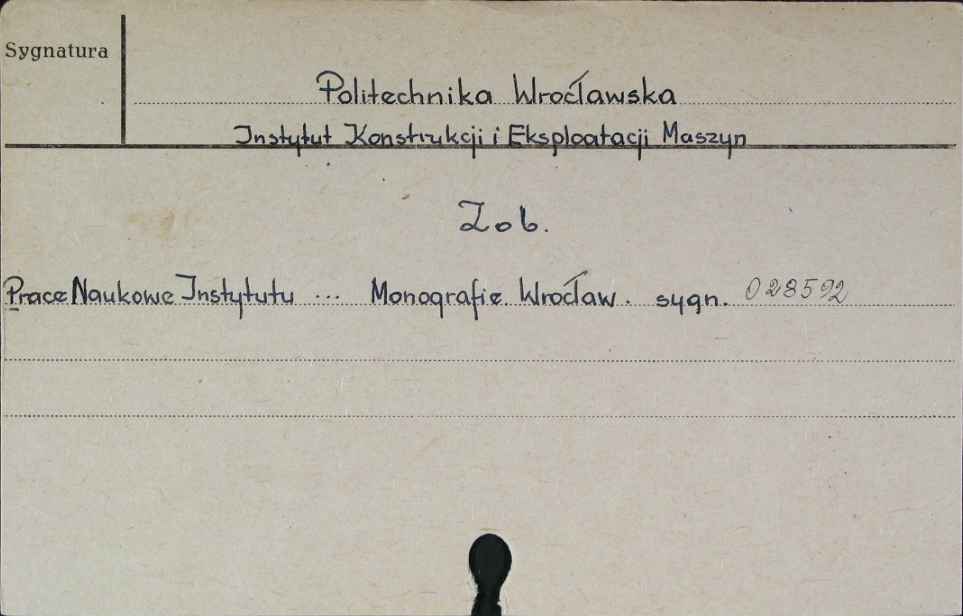 Sygnatura
Politechnika Wrocławska
Instytut Konstrukcji i Eksploatacji Maszyn
Zob.
Prace Naukowe Instytutu ... Monografie. Wrocław. sygn. 028592